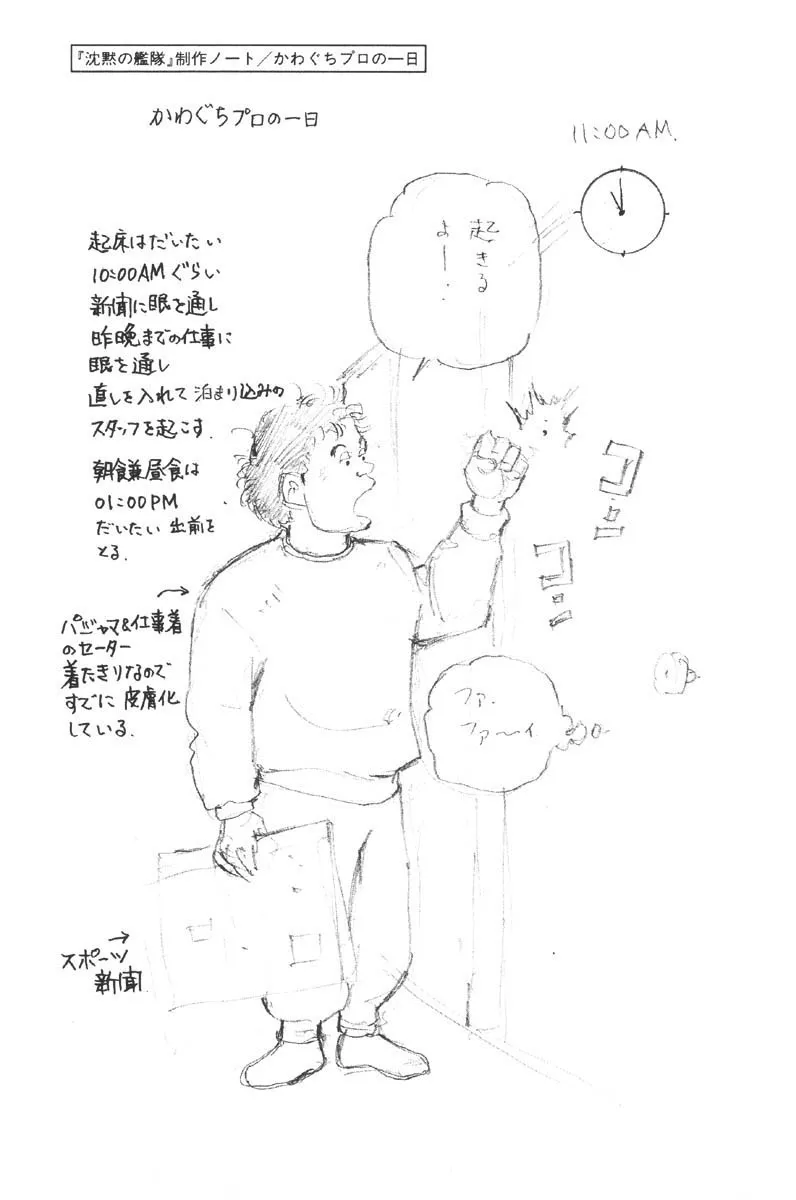 『沈黙の艦隊』制作ノート／かわぐちプロの一日
かわぐちプロの一日
11:00 AM.
起きる
よー．
起床はだいたい
10:00AMぐらい
新聞に眼を通し
昨晩までの仕事に
眼を通し
直しを入れて泊まり込みの
スタッフを起こす．
朝食兼昼食は
01:00PM
だいたい出前を
とる．
コン
コン
パジャマ&仕事着
のセーター
着たきりなので
すでに皮膚化
している．
ファ．
ファ〜ィ
スポーツ
新聞